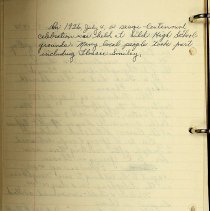 In 1926 July 4, a sesqui-Centennial
celebration was held at High School
grounds. Many local people took part
including Flossie Smiley.